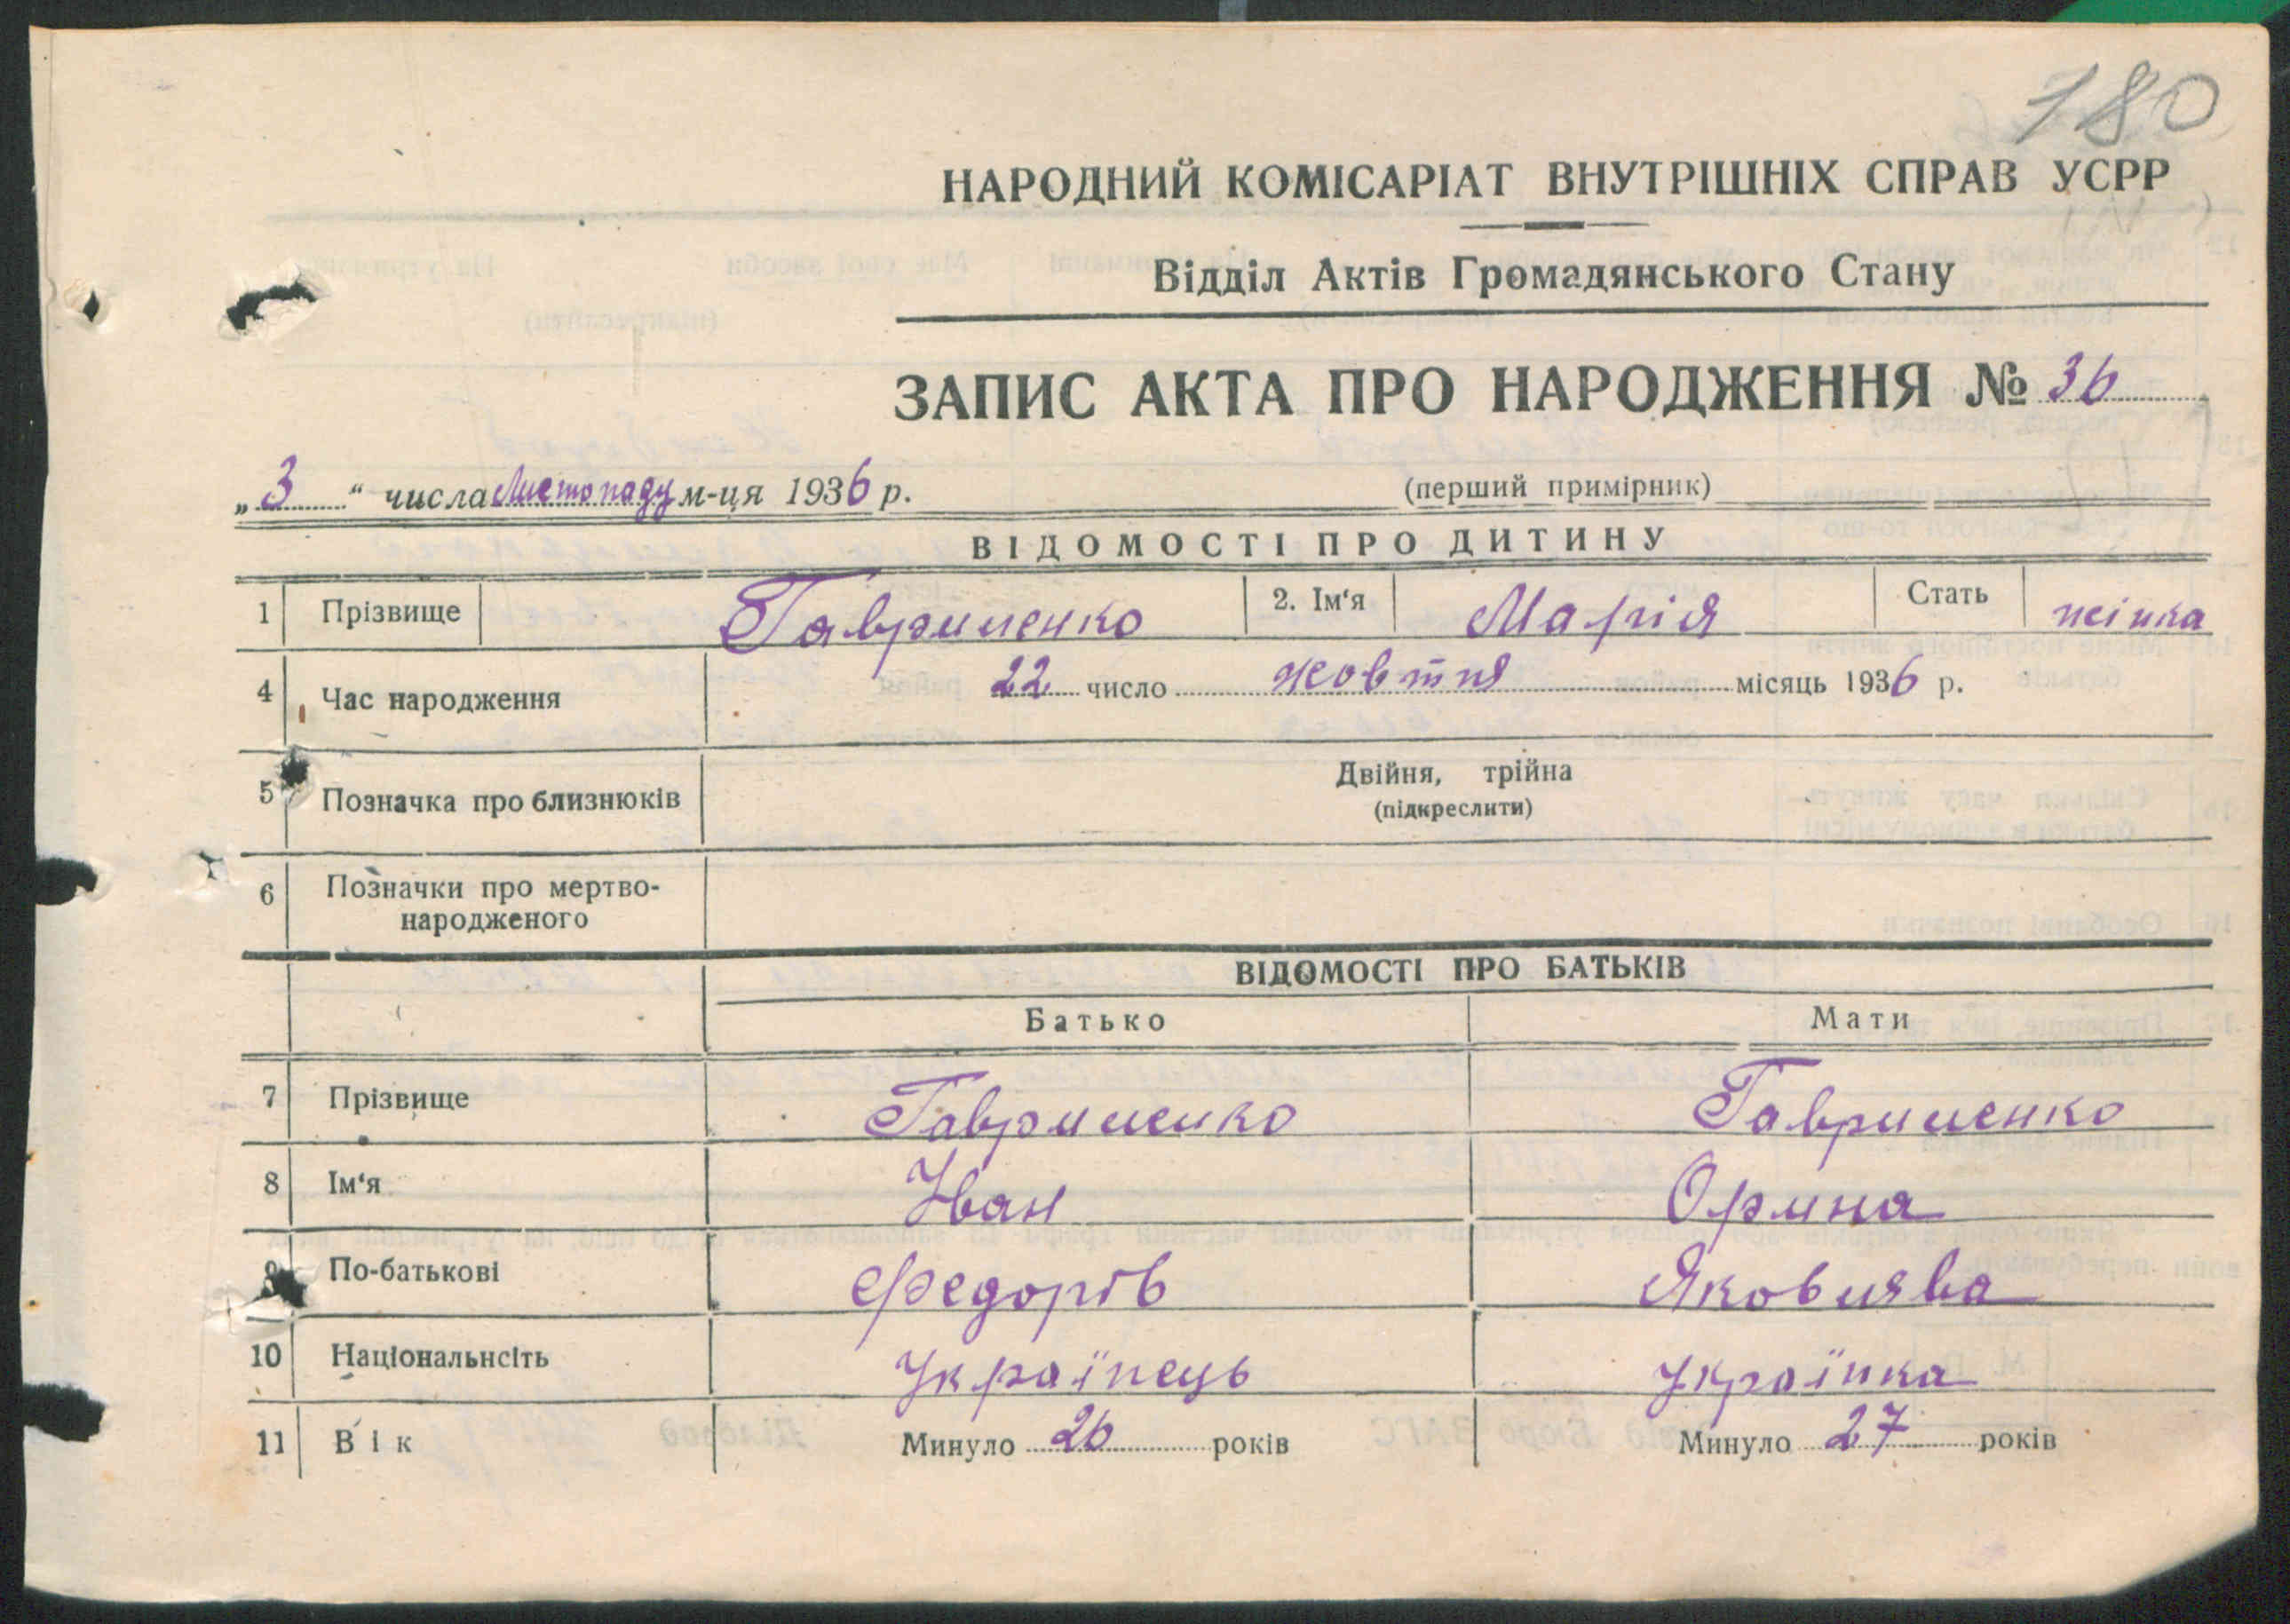 180
НАРОДНИЙ КОМІСАРІАТ ВНУТРІШНІХ СПРАВ УСРР
Відділ Актів Громадянського Стану
ЗАПИС АКТА ПРО НАРОДЖЕННЯ № 36
„3“ числа Листопаду м-ця 1936 р.
(перший примірник)
ВІДОМОСТІ ПРО ДИТИНУ
1 Прізвище Гавриленко 2. Ім‘я Марія Стать жінка
4 Час народження 22 число жовтня місяць 1936 р.
5 Позначка про близнюків Двійня, трійна
(підкреслити)
6 Позначки про мертво-
народженого
ВІДОМОСТІ ПРО БАТЬКІВ
Батько Мати
7 Прізвище Гавриленко Гавриленко
8 Ім‘я Іван Орина
9 По-батькові Федорів Яковлява
10 Національнсіть Українець Українка
11 Вік Минуло 26 років Минуло 27 років